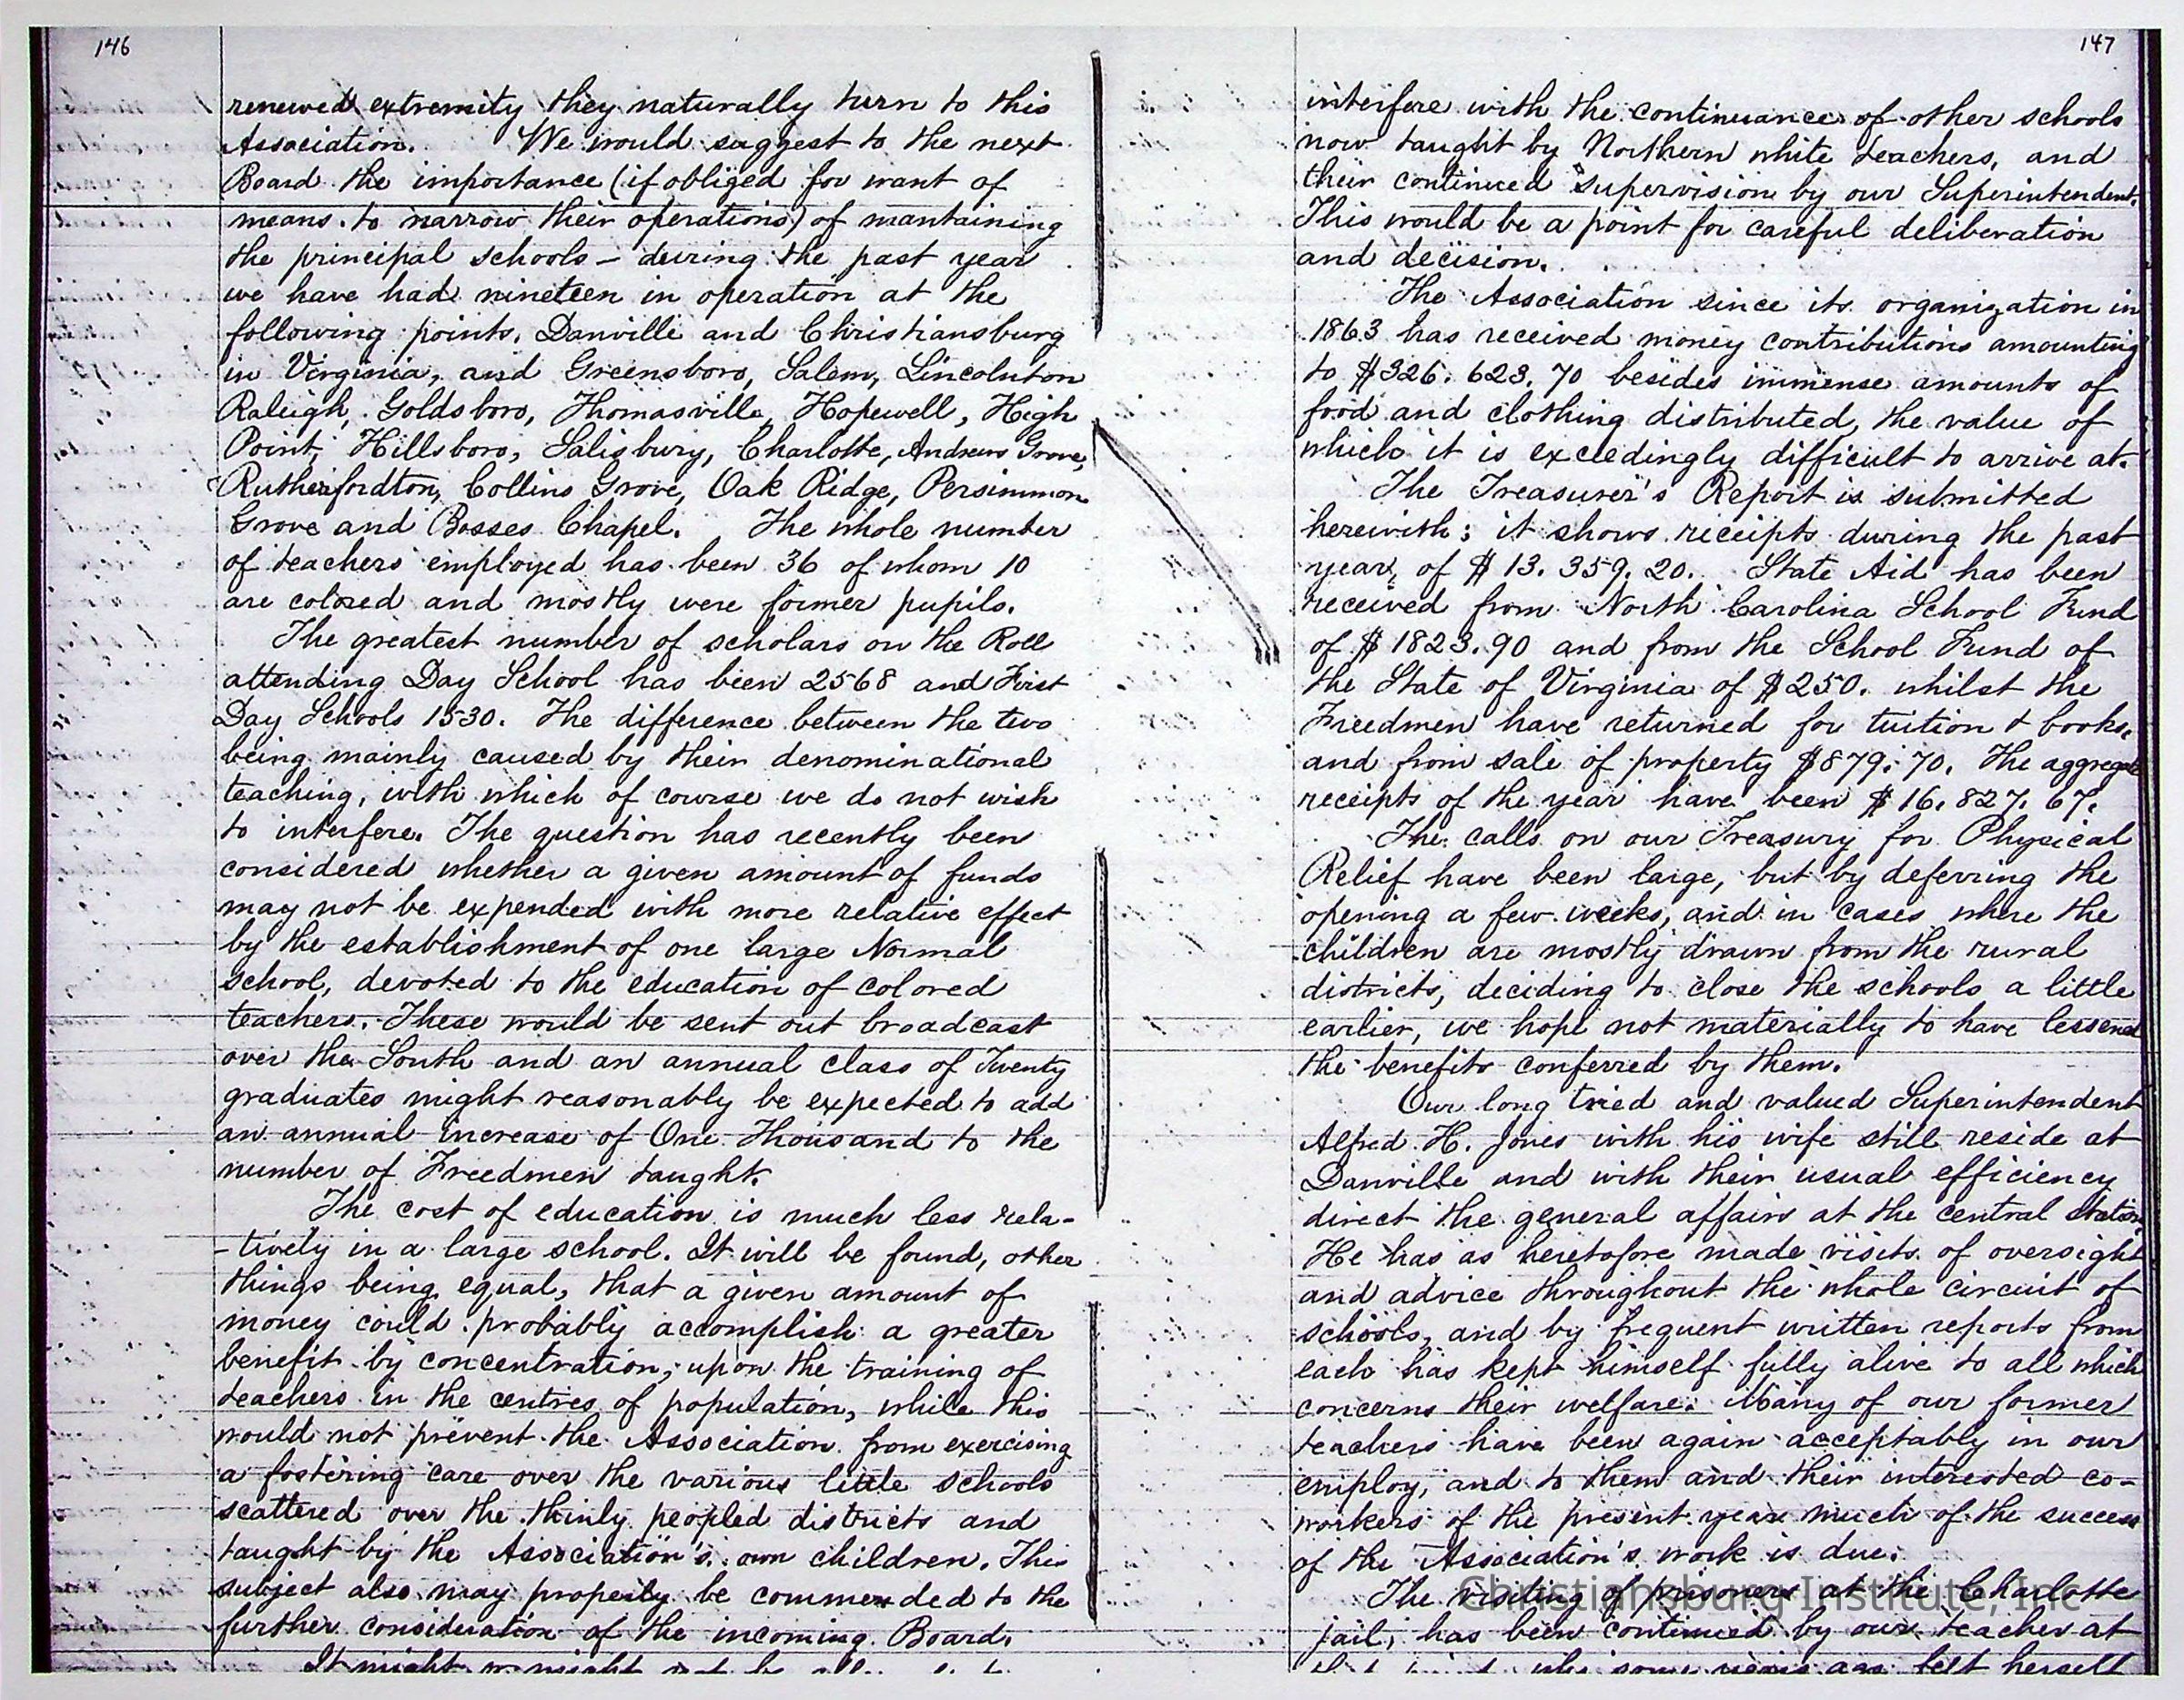 146
renewed extremity they naturally turn to this
Association. We would suggest to the next
Board the importance (if obliged for want of
means to narrow their operations) of mantaining
the principal schools – during the past year
we have had nineteen in operation at the
following points, Danville and Christiansburg
in Virginia, and Greensboro, Salem, Lincolnton
Raleigh, Goldsboro, Thomasville, Hopewell, High
Point, Hillsboro, Salisbury, Charlotte, Andrews Grove,
Rutherfordton, Collins Grove, Oak Ridge, Persimmon
Grove and Bosses Chapel. The whole number
of teachers employed has been 36 of whom 10
are colored and mostly were former pupils.
The greatest number of scholars on the Roll
attending Day School has been 2568 and First
Day Schools 1530. The difference between the two
being mainly caused by their denominational
teaching, with which of course we do not wish
to interfere. The question has recently been
considered whether a given amount of funds
may not be expended with more relative effect
by the establishment of one large Normal
school, devoted to the education of colored
teachers. These would be sent out broadcast
over the South and an annual class of Twenty
graduates might reasonably be expected to add
an annual increase of One Thousand to the
number of Freedmen taught.
The cost of education is much less rela-
-tively in a large school. It will be found, other
things being equal, that a given amount of
money could probably accomplish a greater
benefit by concentration, upon the training of
teachers in the centres of population, while this
would not prevent the Association from exercising
a fostering care over the various little schools
scattered over the thinly peopled districts and
taught by the Association's own children. This
subject also may properly be commended to the
further consideration of the incoming Board.
It might
147
interfere with the continuance of other schools
now taught by Northern white teachers, and
their continued supervision by our Superintendent.
This would be a point for careful deliberation
and decision.
The Association since its organization in
1863 has received money contributions amounting
to $326.623.70 besides immense amounts of
food and clothing distributed, the value of
which it is exceedingly difficult to arrive at.
The Treasurer's Report is submitted
herewith; it shows receipts during the past
year, of $13.359.20. State Aid has been
received from North Carolina School Fund
of $1823.90 and from the School Fund of
the State of Virginia of $250. whilst the
Freedmen have returned for tuition & books,
and from sale of property $879.70. The aggregate
receipts of the year have been $16.827.67.
The calls on our Treasury for Physical
Relief have been large, but by deferring the
opening a few weeks, and in cases where the
children are mostly drawn from the rural
districts, deciding to close the schools a little
earlier, we hope not materially to have lessened
the benefits conferred by them.
Our long tried and valued Superintendent
Alfred H. Jones with his wife still reside at
Danville and with their usual efficiency
direct the general affairs at the central station
He has as heretofore made visits of oversight
and advice throughout the whole circuit of
schools, and by frequent written reports from
each has kept himself fully alive to all which
concerns their welfare. Many of our former
teachers have been again acceptably in our
employ, and to them and their interested co-
workers of the present year much of the success
of the Association's work is due.
The visiting of prisoners at the Charlotte
jail, has been continued by our teacher at
who some years ago felt herself
Christiansburg Institute, Inc